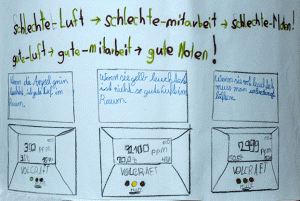 schlechte-Luft → schlechte-mitarbeit → schlechte-Noten!
gute-Luft → gute-mitarbeit → gute Noten!
Wenn die Ampel grün
leuchtet ist gute Luft im
Raum
Wenn sie gelb leuchtet
ist nicht so gute Luft im
Raum
Wenn sie rot leuchtet
muss man
lüften
310
ppm
VOLCRAFT
ppm
VOLCRAFT
ppm
VOLCRAFT